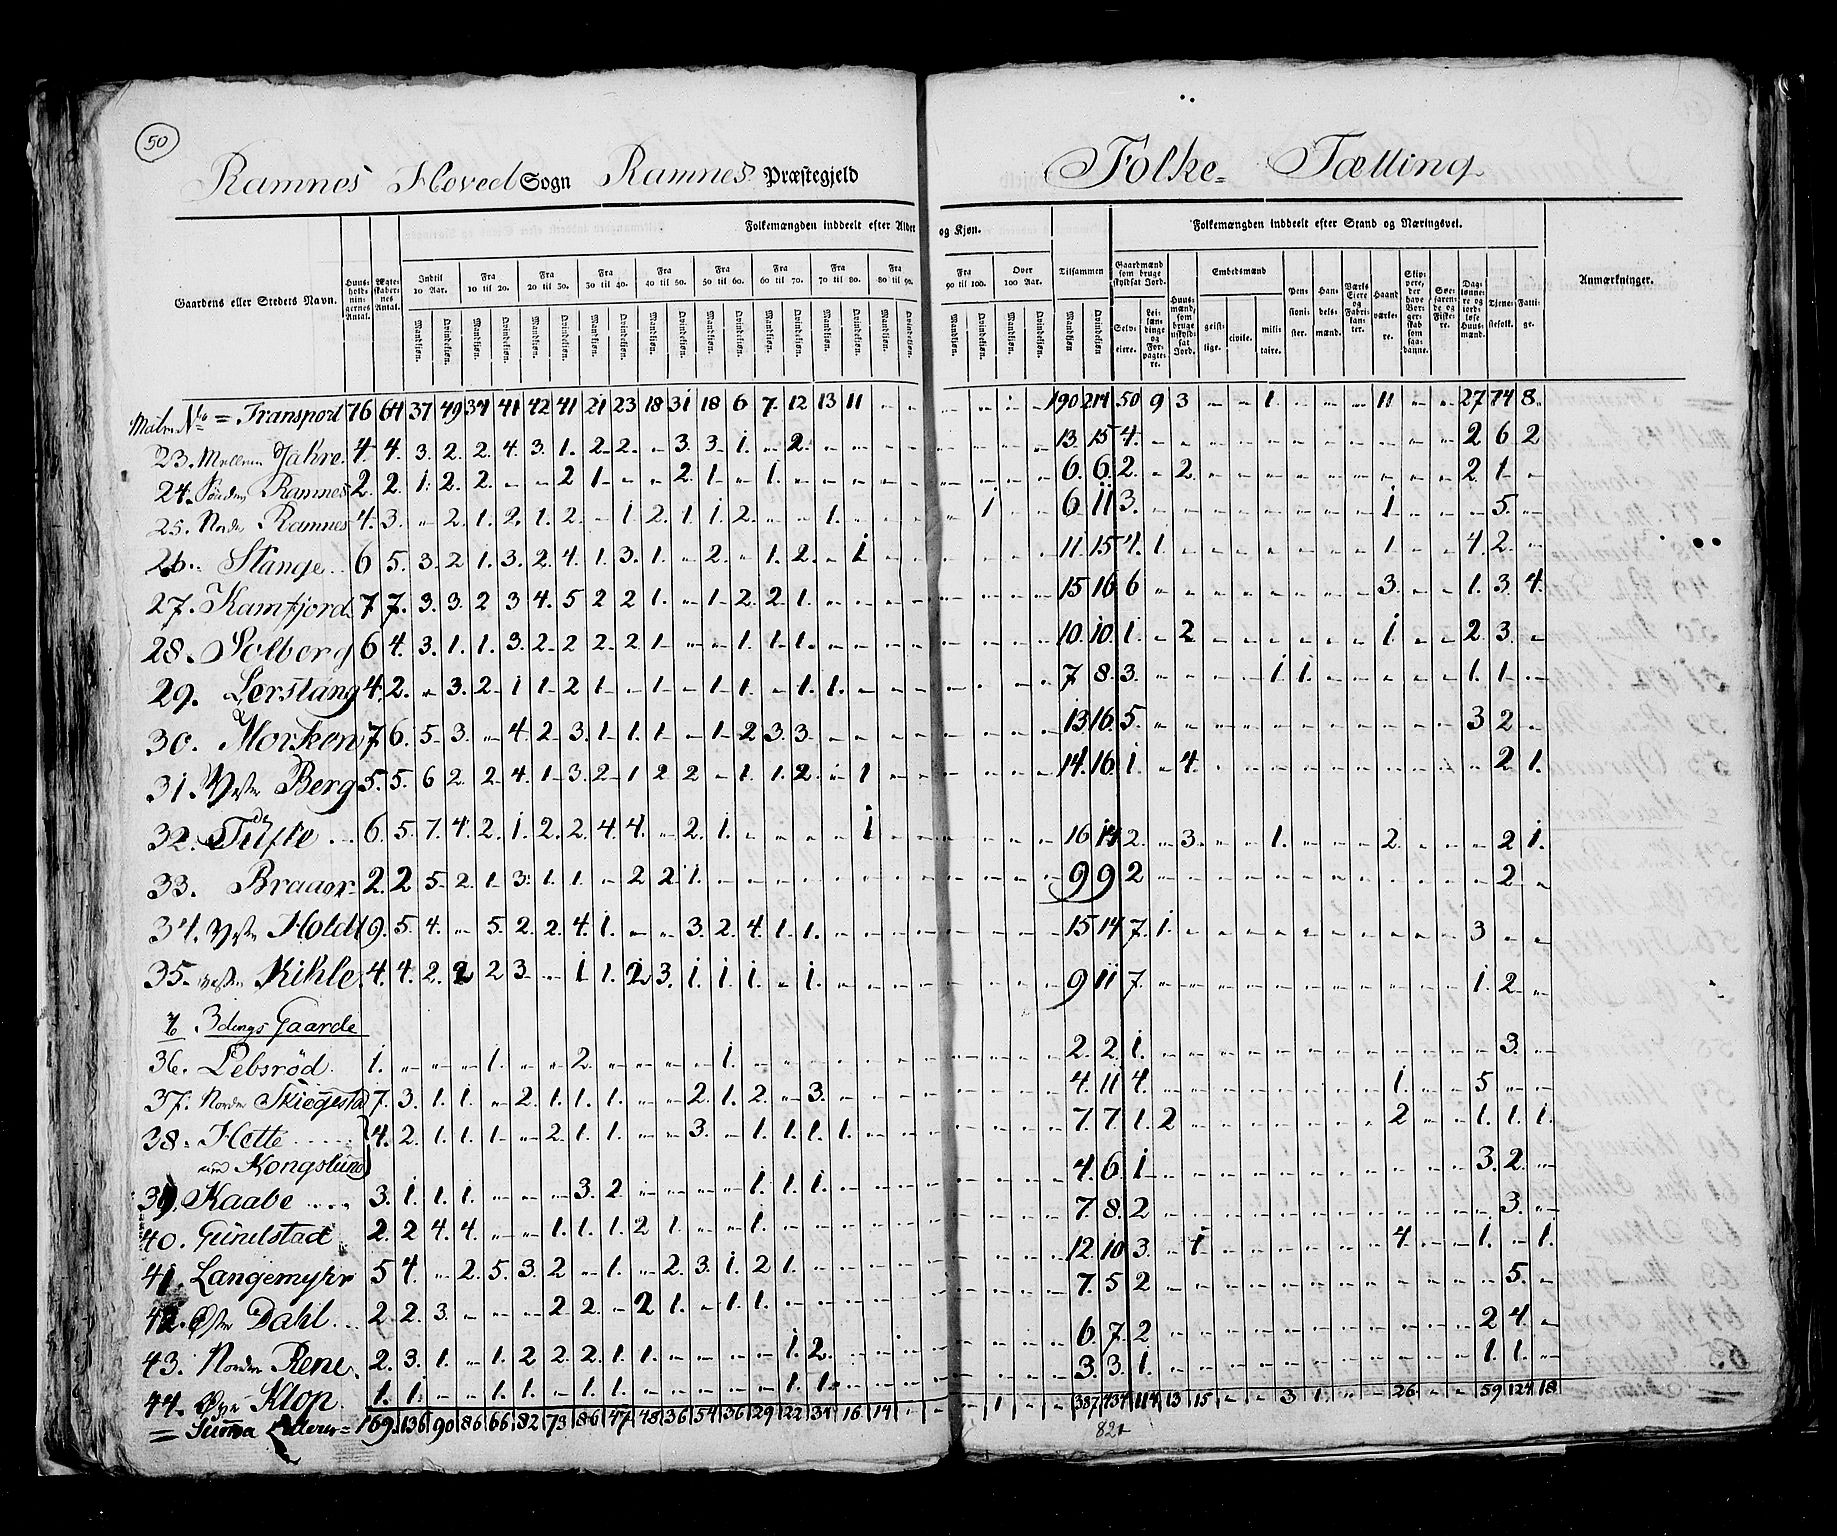 50
Ramnes Hoved Sogn Ramnes Præstegjeld Folke- Tælling
Folkemængden inddeelt efter Alder og Kjøn. Folkemængden inddeelt efter Stand og Næringsvei.
Gaardens eller Stedets Navn. Huus-holdningernes Antal. Ægteskabernes Antal. Indtil 10 Aar. Fra 10 til 20. Fra 20 til 30. Fra 30 til 40. Fra 40 til 50. Fra 50 til 60. Fra 60 til 70. Fra 70 til 80. Fra 80 til 90. Fra 90 til 100. Over 100 Aar. Tilsammen Gaardmænd som bruge skyldsat Jord. Huusmænd, som bruge uskyldsat Jord. Embedsmænd Pensionister. Handelsmænd. Værks Eiere og Fabrikanter. Haandværkere. Skippere, der have Borgerskab som saadanne. Søefarende og Fiskere. Dagleiere og jordløse Huusmænd. Tjenestefolk. Fattige. Anmærkninger.
Mandkjøn. Qvindekjøn. Selveiere. Leilændinge og Forpagtere. geistlige. civile. militaire.
= Transport 76 64 37 49 34 41 42 41 21 23 18 31 18 6 7. 12 13 11 190 214 50 9 3 1. 11 27 74 8
23. Jahre. 4. 4. 3. 2. 2. 4. 3. 1. 2. 2. 3. 3. 1. 2. 13. 15 4. 2 6 2
24. Ramnes 2. 2. 1. 2. 2. 2 1. 2. 1. 1. 6. 6. 2. 2. 2 1.
25. Norder Ramnes 4. 3. 2. 1. 2. 1. 2. 1. 2. 1. 1. 2. 1. 1 6 11 3. 1. 5.
26. Stange 6 5. 3. 2 1. 3. 2. 4. 1. 3. 1. 2. 1. 2. 1 11. 15 4. 1. 1. 4. 2.
27. Kamfjord 7 7. 3. 3. 2 3 4. 5 2 2 1. 1. 2. 2 1. 15 16 6 3. 1. 3. 4.
28. Solberg 6 4. 3. 1. 1. 3. 2 2 2 2 1. 1. 1. 1. 10. 10. 1. 2. 1. 2. 3.
29. Lerstang 4. 2. 3. 2. 1 1. 2 1. 1. 1. 1. 1. 1. 7 8. 3. 1 1. 1. 1.
30. Morken 7 6. 5. 3. 4. 2. 3. 1. 1. 1. 1. 2 3. 3. 13 16. 5. 3 2
31. Vestre Berg 5. 5. 6 2. 2. 4. 1. 3. 2. 1 2 2 1. 1. 2. 1 14. 16 1. 4. 2 1.
32. Tufte 6. 5. 7. 4. 2. 1. 2. 2. 4. 4. 2. 1. 1 16 14 2. 3. 1. 2. 2 1.
33. Braaer 2. 2 5. 2. 1. 3. 1. 1. 2 2 1. 9 9 2 2
34. Vestre Holdt 9. 5. 4. 5. 2. 2. 4. 1. 3. 2. 4. 1. 1. 15 14 7. 1. 3
35. Kihle 4. 4. 2. 2 2 3. 1 1. 2 3. 1. 1. 1. 1. 9 11 7. 1. 2.
3dings Gaarde
36. Lebsrød 1. 1. 2. 1. 2. 2. 1. 3.
37. Norder Skiegestad 7. 3. 1. 1. 2. 1. 1. 1. 2. 1. 2. 3. 4. 11 4. 1. 5
38. Hette 4. 2. 1. 1. 1. 2. 1. 1. 3. 1. 1. 1. 1. 7. 7. 1. 2 2 1. 1. 1.
Kongslund
39. Kaabe 3. 1. 1. 1. 3. 2 1. 1. 1. 4. 6. 1 3. 2.
40. Gundstad 2. 2 4. 4. 1. 1. 1. 2 1. 1. 7. 8. 2 3.
41. Langemyhr 5 4. 2. 5. 3. 2 1. 2. 3. 1. 2 1. 12. 10 3. 1 4. 1. 1.
42. Østre Dahl 2 2. 3. 2. 2. 2 1. 1. 1. 7. 5 2 5.
43. Norder Rene. 2. 3. 1. 1. 2 2. 2. 1. 1. 1. 2. 6. 7. 2 2 4.
44. Klop 1. 1. 1. 1. 1. 1. 1. 1. 3. 3. 1. 1. 1.
= Summa 169. 136. 90 86 66 82 73 86 47 48 36 54 36 29 22 34 16 14 1 387 434 114 13 15 3 1. 26 59 124 18
821